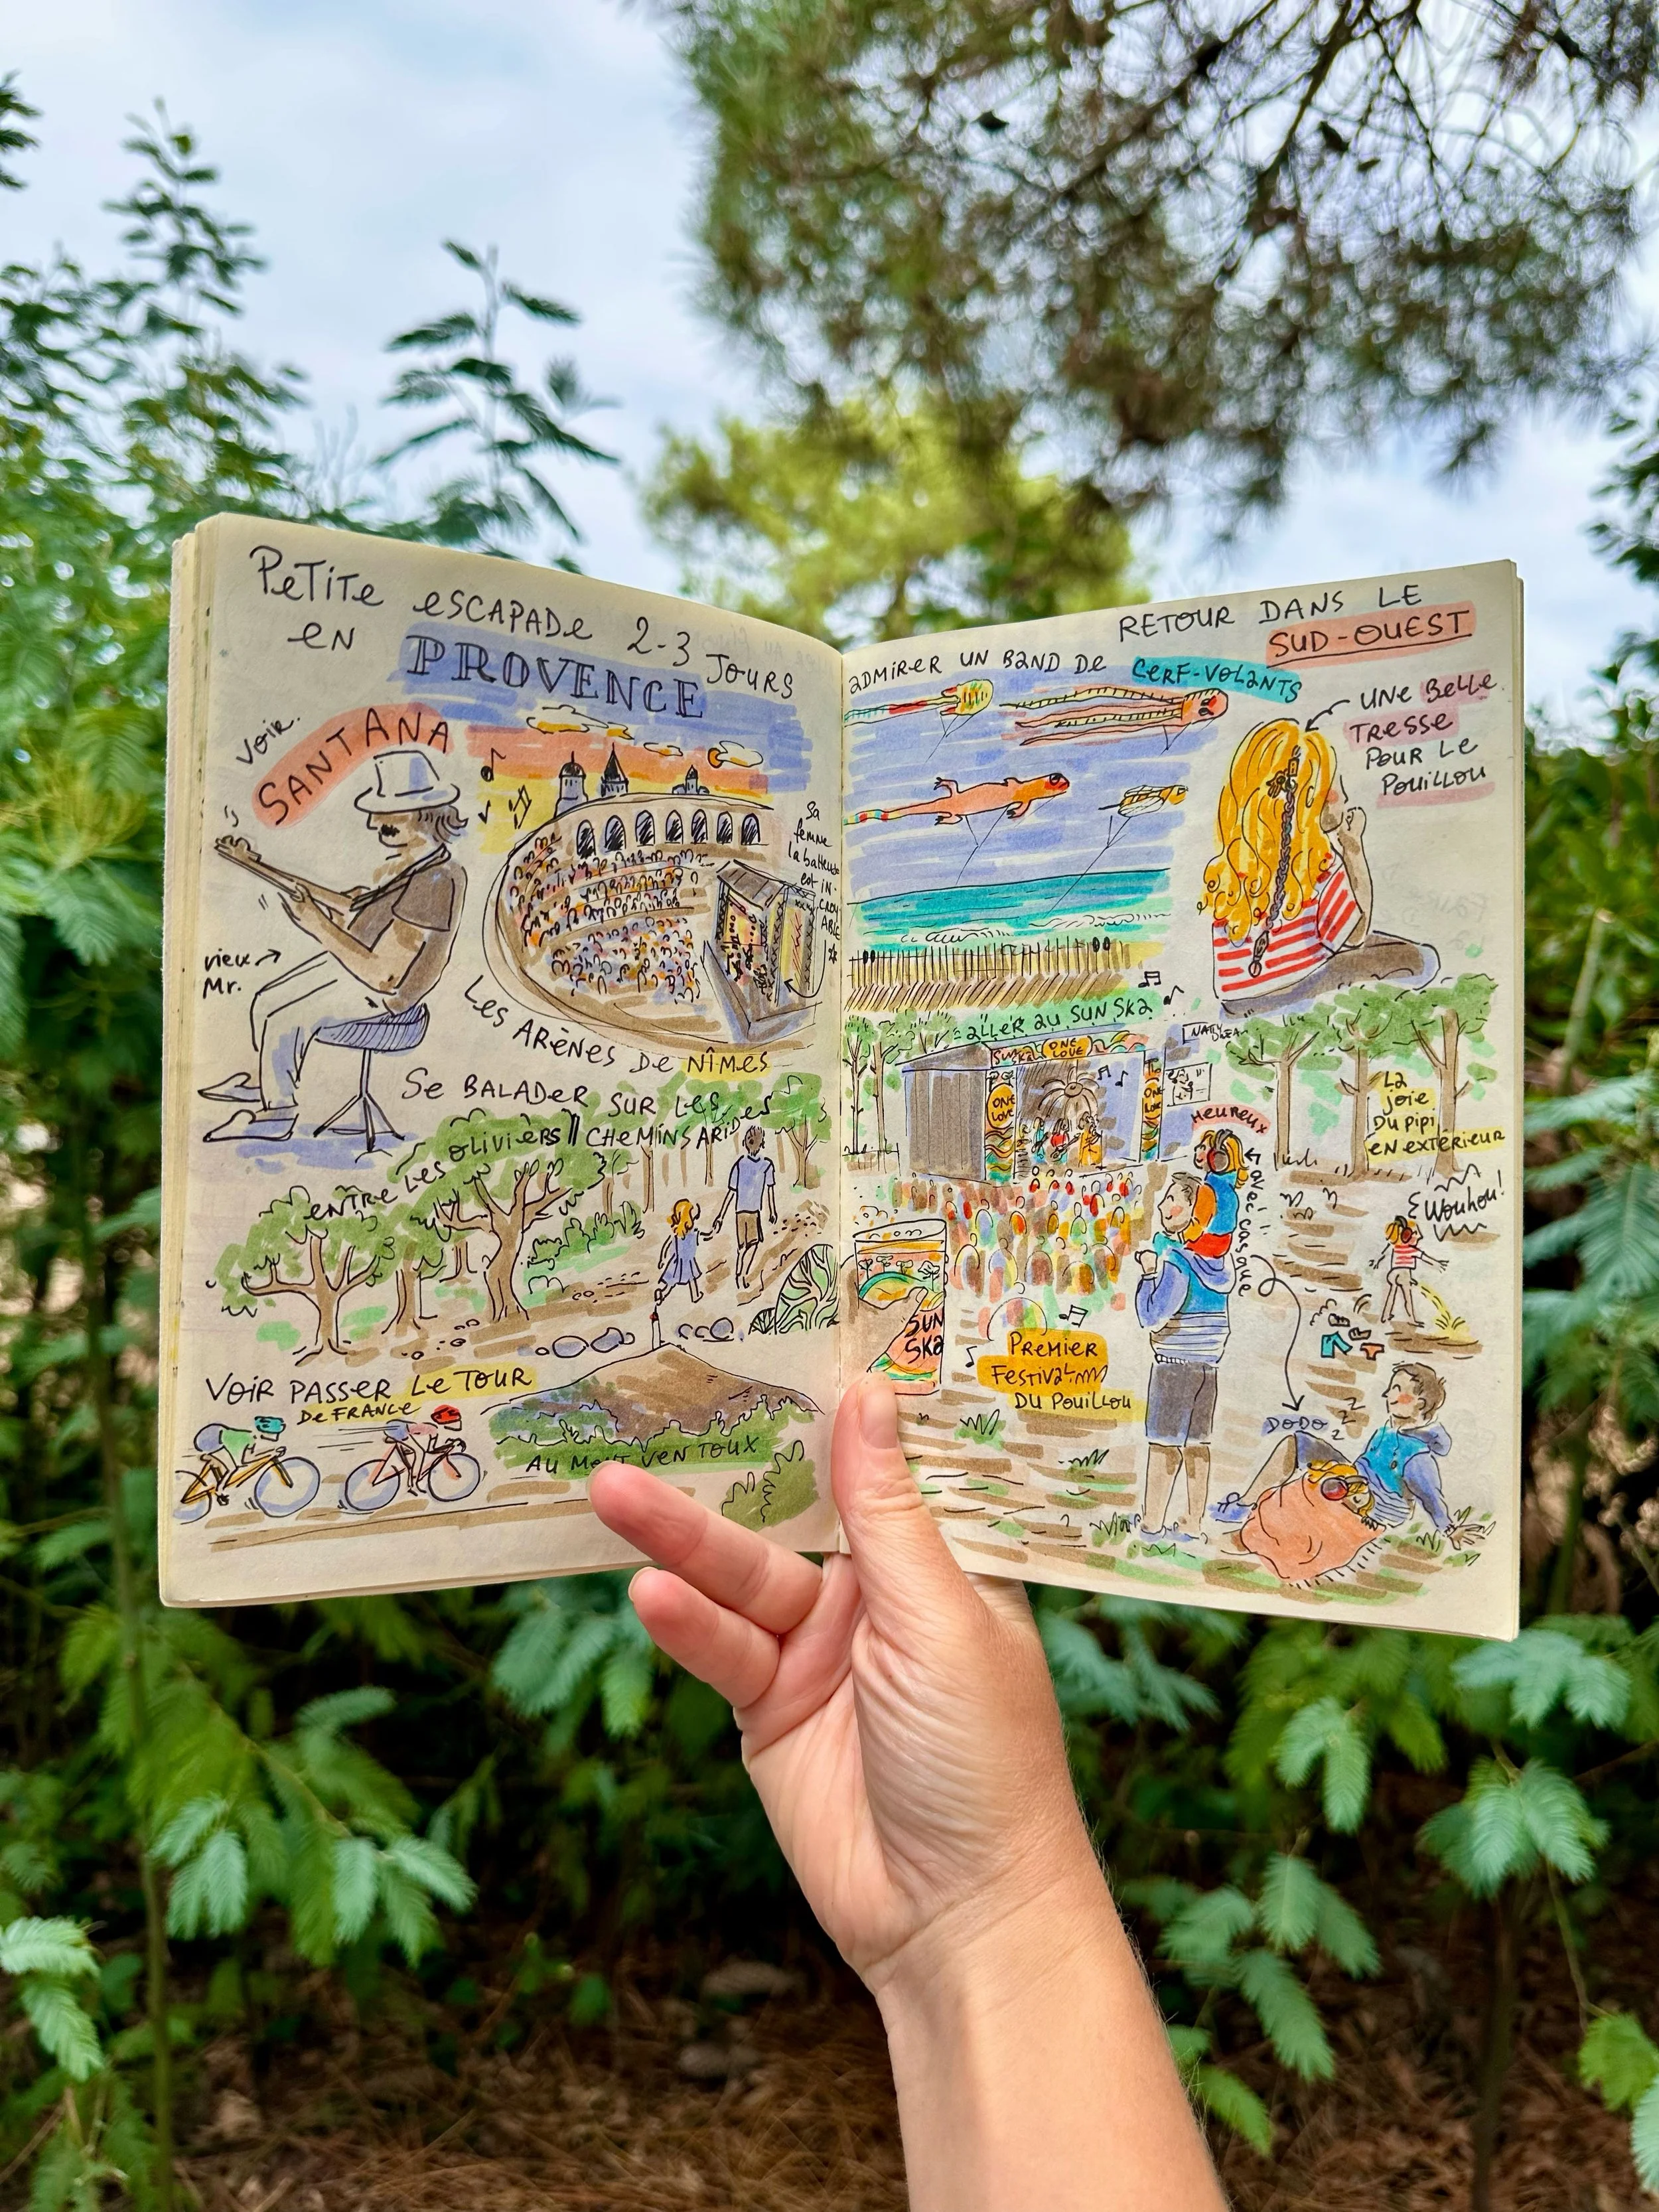 PETITE ESCAPADE 2-3 JOURS
EN PROVENCE
VOIR
SANTANA
vieux
Mr.
Sa
femme
la batteuse
est IN-
CROY-
ABLE
LES ARÈNES DE NÎMES
SE BALADER SUR LES
CHEMINS ARIDES
ENTRE LES OLIVIERS
VOIR PASSER LE TOUR
DE FRANCE
AU MONT VENTOUX
RETOUR DANS LE
SUD-OUEST
ADMIRER UN BAND DE CERF-VOLANTS
UNE BELLE
TRESSE
POUR LE
POUILLOU
ALLER AU SUN SKA
ONE
LOVE
ONE
LOVE
HEUREUX
AVEC CASQUE
LA
JOIE
DU PIPI
EN EXTÉRIEUR
Wouhou!
SUN
SKA
PREMIER
FESTIVAL
DU POUILLOU
DODO
Z
Z
Z